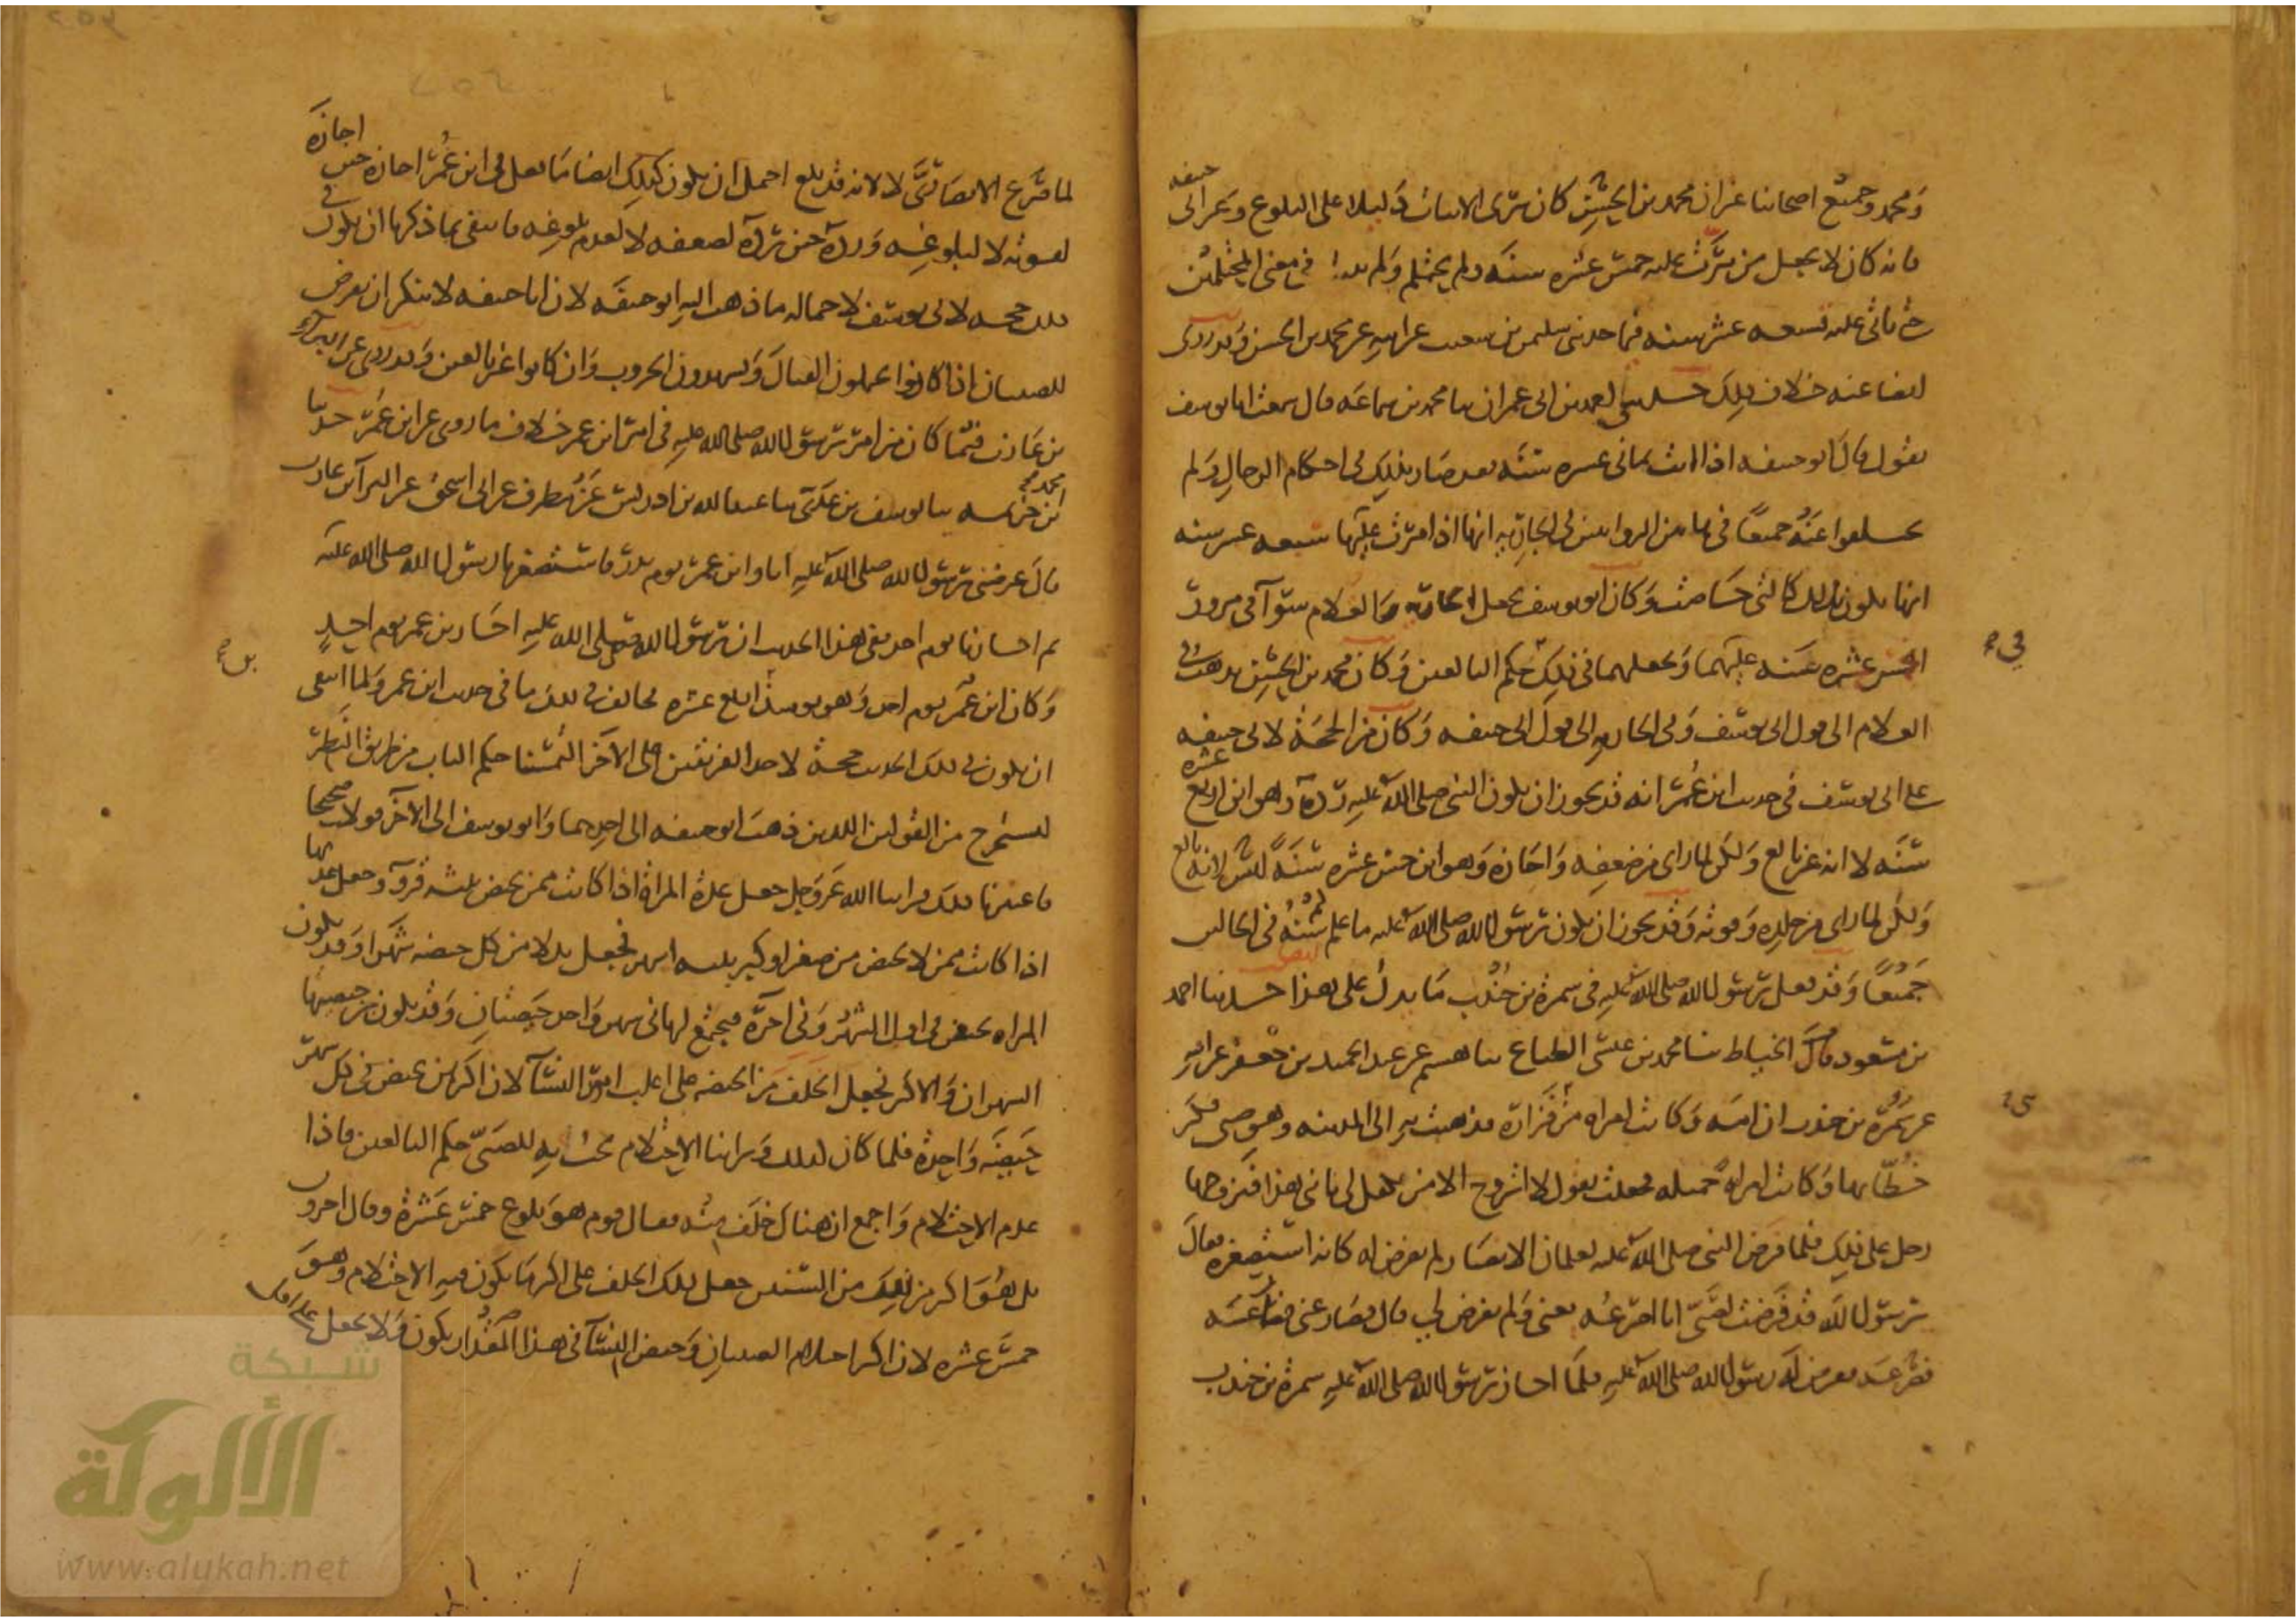 ومحمد وجميع اصحابنا غير ان محمد بن الحسن كان يرى الانبات دليلا على البلوغ وغير ابي حنيفه
فانه كان لا يجعل من مرت عليه خمس عشره سنه ولم يحتلم ولم في معنى المحتلمين
حتى ياتي عليه تسعه عشر سنه فيما حدثني سليمن بن سعيب عن ابيه عن محمد بن الحسن وقد روى
ايضا عنه خلاف ذلك حدثني احمد بن ابي عمران ثنا محمد بن سماعه قال سمعت ابا يوسف
يقول قال ابو حنيفه اذا اتت ثماني عسره سنه فقد صار بذلك في احكام الرجال ولم
يختلفوا عنه جميعا في هاتين الروايتين في الجاريه انها اذا مرت عليها سبعه عسر سنه
انها تكون بذلك كالتي حاضت وكان ابو يوسف يجعل الجاريه والغلام سوآ في مرور
الخمس عشره سنه عليهما ويجعلهما في ذلك حكم البالغين وكان محمد بن الحسن يذهب في
الغلام الى قول ابي يوسف وفي الجاريه الى قول ابي حنيفه وكان من الحجة لابي حنيفه
على ابي يوسف في حديث ابن عمر انه قد يجوز ان يكون النبي صلى الله عليه رده وهو ابن اربع عشره
سنه لا انه غير بالغ ولكن لما راى من ضعفه واجازه وهو ابن خمس عشره سنة ليس لانه بالغ
ولكن لما راى من جلده وقوته وقد يجوز ان يكون رسول الله صلى الله عليه ما علم كم سنه في الحالين
جميعا وقد فعل رسول الله صلى الله عليه في سمرة بن جندب ما يدل على هذا ايضا حدثنا احمد
بن مسعود قال الخياط ثنا محمد بن عيسى الطباع ثنا هسيم عن عبد الحميد بن جعفر عن ابيه
عن سمرة بن جندب ان امه وكانت امراه من فزارة فذهبت به الى المدينه وهو صبي فكثر
خطابها وكانت امراة جميله فجعلت تقول لا اتزوج الا من يكفل لي بابني هذا فتزوجها
رجل على ذلك فلما فرض النبي صلى الله عليه لغلمان الانصار ولم يفرض له كانه استصغره فقال
يرسول الله قد فرضت لصبي انا اصرعه يعني ولم تفرض لي قال فصارعني فصارعته
فصرعته ففرض له رسول الله صلى الله عليه فلما اجاز رسول الله صلى الله عليه سمرة بن جندب
لما صرع الانصاري لا لانه قد بلغ احتمل ان يكون كذلك ايضا ما فعل في ابن عمر اجازه حين اجازه
لقوته لا لبلوغه ورده حين رده لضعفه لا لعدم بلوغه فانتفى بما ذكرنا ان يكون في
ذلك حجه لابي يوسف لاحتماله ما ذهب اليه ابو حنيفه لان ابا حنيفه لا ينكر ان يفرض
للصبيان اذا كانوا يحملون القتال ويسهدون الحروب وان كانوا غير بالغين وقد روى عن البراء
بن عازب فيما كان من امر رسول الله صلى الله عليه في امر ابن عمر خلاف ما روى عن ابن عمر حدثنا
محمد بن خزيمه ثنا يوسف بن عدي ثنا عبد الله بن ادريس عن مطرف عن ابي اسحق عن البرآ بن عازب
قال عرضني رسول الله صلى الله عليه انا وابن عمر يوم بدر فاستصغرنا رسول الله صلى الله عليه
ثم اجازنا يوم احد ففي هذا الحديث ان رسول الله صلى الله عليه اجاز بن عمر يوم احد
وكان ابن عمر يوم احد وهو يومئذ ابن اربع عشره فخالف ذلك ما في حديث ابن عمر ولما انتفى
ان يكون في ذلك الحديث حجة لاحد الفريقين على الاخر التمسنا حكم الباب من طريق النظر
لنستخرج من القولين اللذين ذهب ابو حنيفه الى احدهما وابو يوسف الى الاخر قولا صحيحا
فاعتبرنا ذلك فراينا الله عز وجل جعل عدة المراة اذا كانت ممن تحيض ثلثه قروء وجعل عدتها
اذا كانت ممن لا تحيض من صغر او كبر ثلثه اسهر فجعل بدلا من كل حيضه شهرا وقد تكون
المراه تحيض في اول الشهر وفي اخره فيجتمع لها في سهر واحد حيضتان وقد يكون بين حيضتيها
الشهران والاكثر فجعل الخلف من الحيضه على اغلب امور النسآ لان اكثرهن تحيض في كل سهر
حيضة واحدة فلما كان ذلك كذلك وراينا الاحتلام يجب به للصبي حكم البالغين فاذا
عدم الاحتلام واجمع ان هناك خلف منه فقال قوم هو بلوغ خمس عشرة وقال اخرون
بل هو اكثر من ذلك من السنين جعل ذلك الخلف على اكثر ما يكون فيه الاحتلام وهو
خمس عشره لان اكثر احتلام الصبيان وحيض النسآ في هذا المقدار يكون ولا يجعل على اقل
شبكة
الألوكة
www.alukah.net